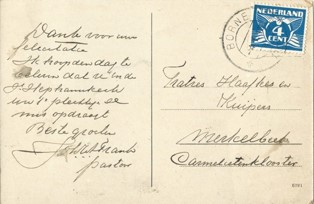 Dank voor uw
felicitatie
Ik hoop den dag te
beleven dat u in de
St Stephanuskerk
uw plechtige H.
mis opdraagt
Beste groeten
pastoor
BORNE
NEDERLAND
4
CENT
Fraters Haafkes en
Kuipers
Merkelbeek
Carmelietenklooster